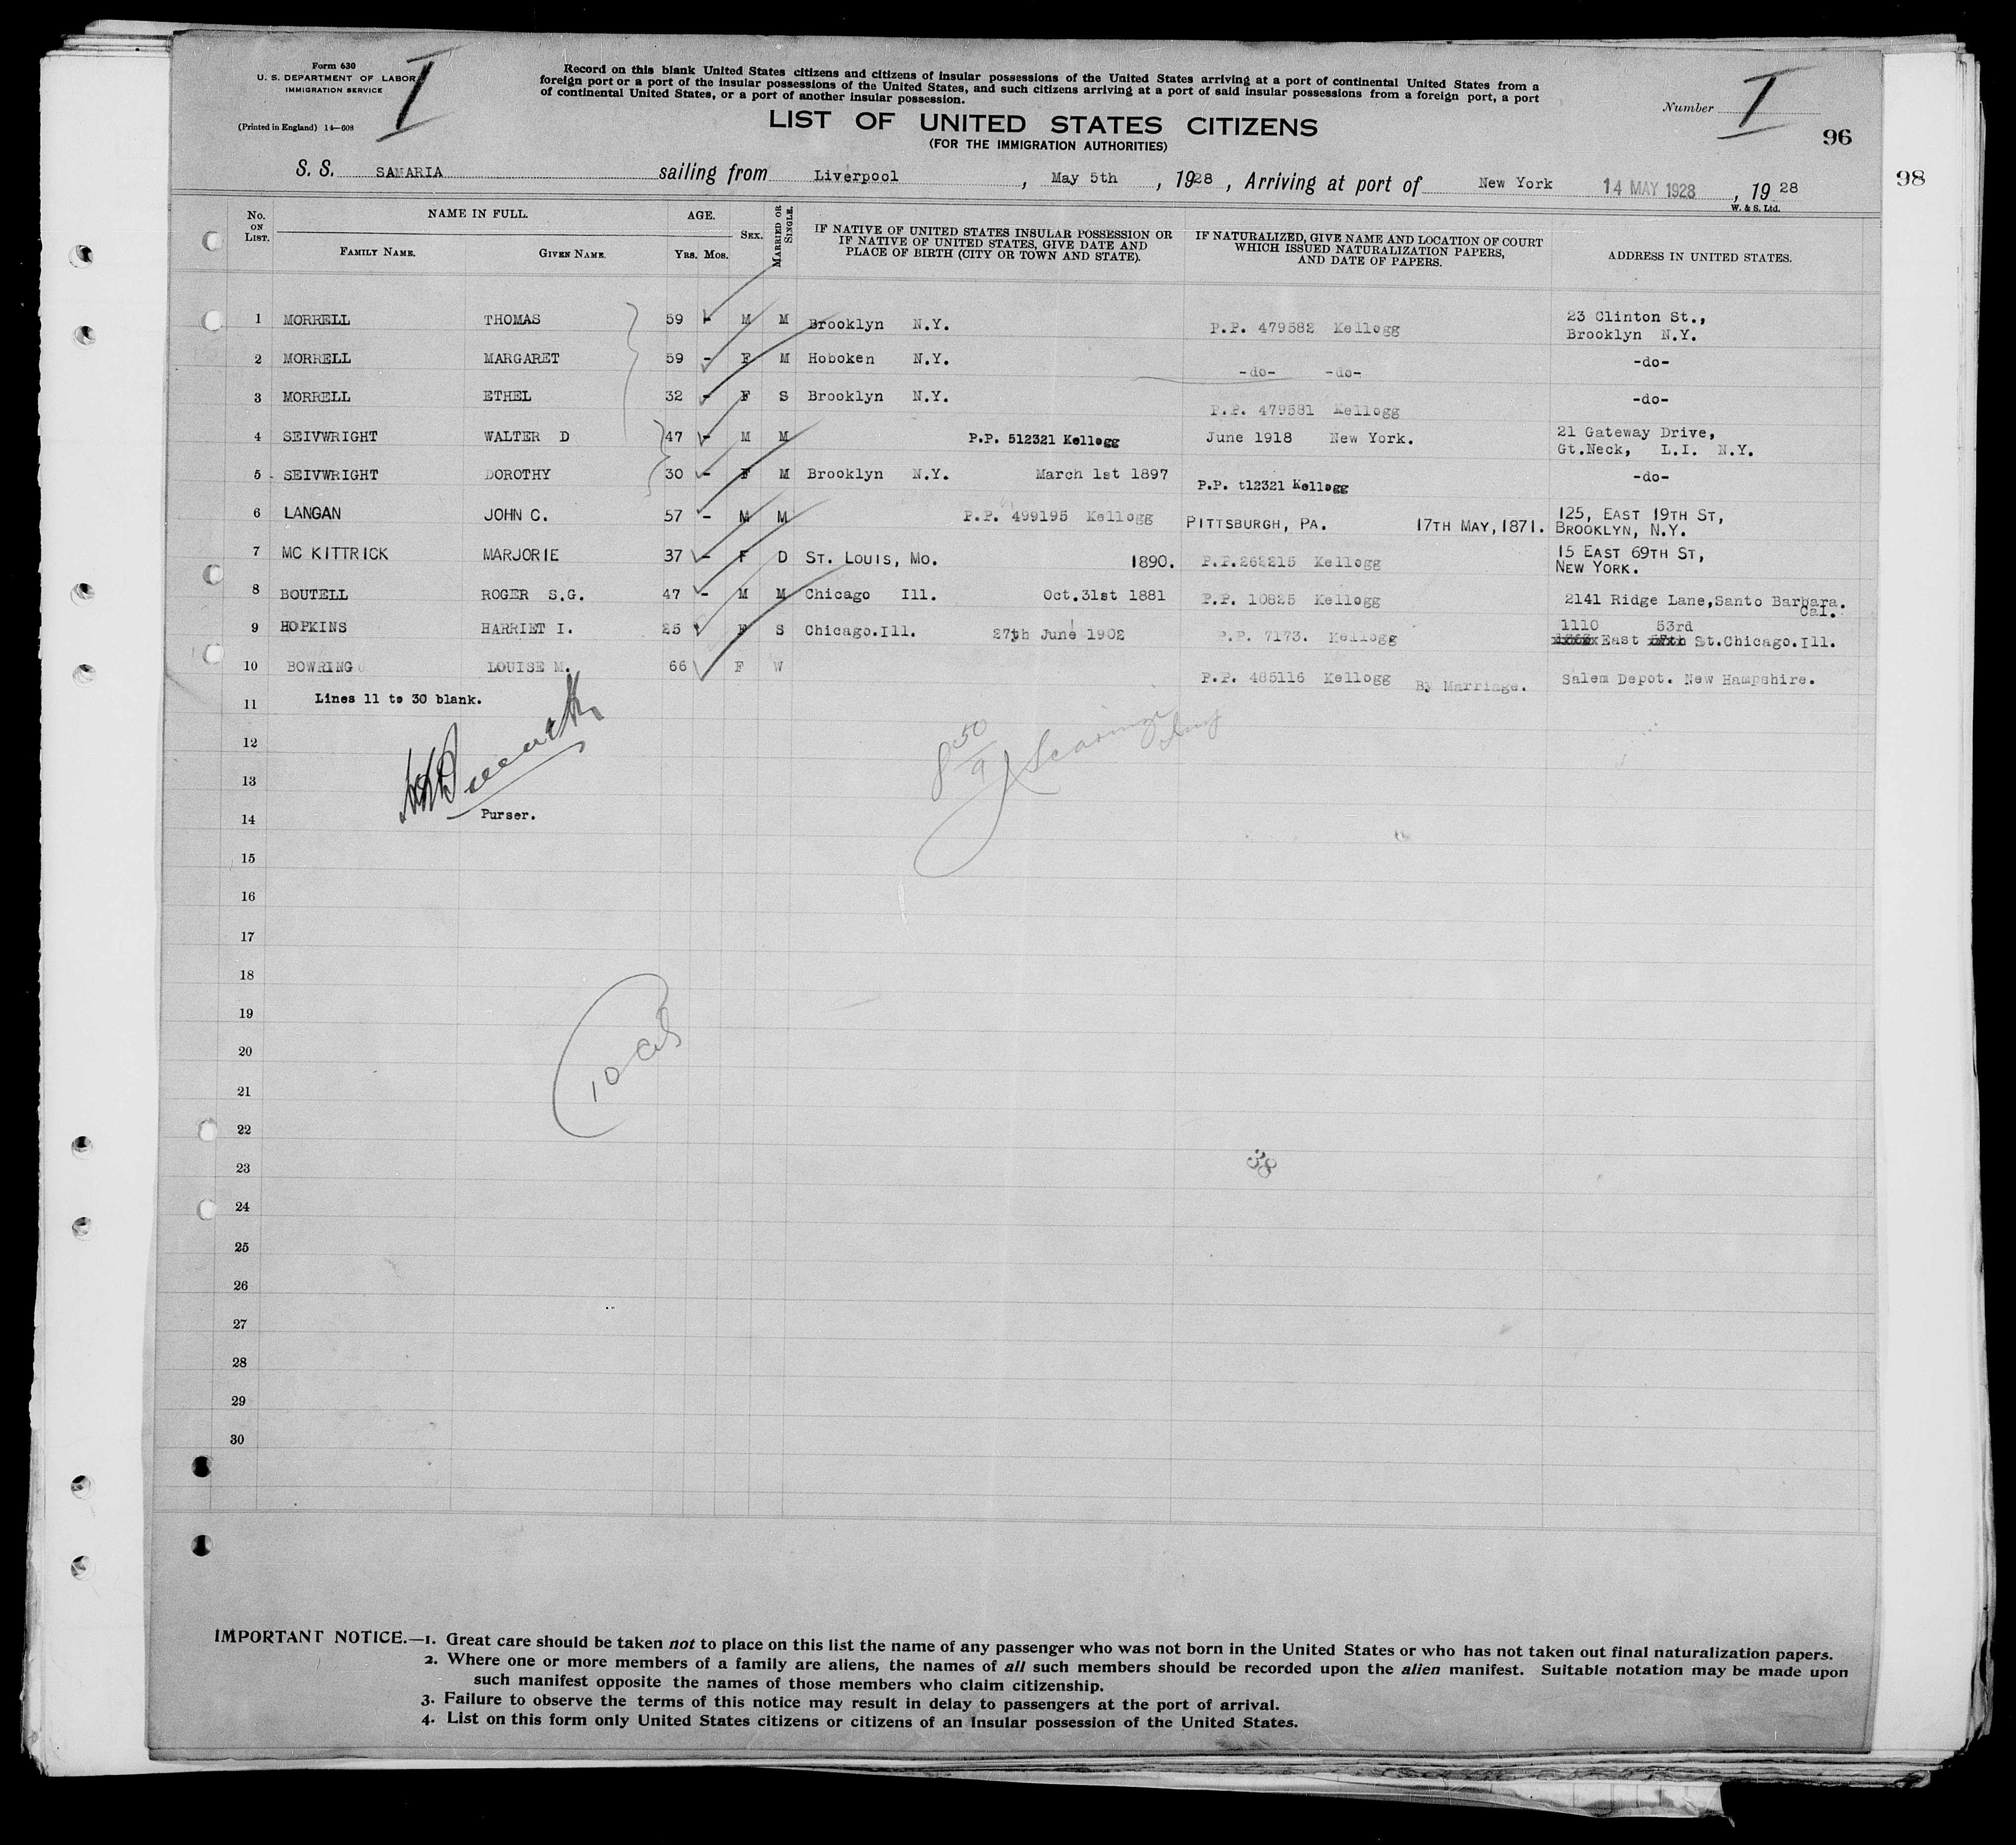 Form 630
U. S. DEPARTMENT OF LABOR
IMMIGRATION SERVICE
(Printed in England) 14—608
I
Record on this blank United States citizens and citizens of insular possessions of the United States arriving at a port of continental United States from a
foreign port or a port of the insular possessions of the United States, and such citizens arriving at a port of said insular possessions from a foreign port, a port
of continental United States, or a port of another insular possession.
LIST OF UNITED STATES CITIZENS
(FOR THE IMMIGRATION AUTHORITIES)
Number I
96
98
S. S. SAMARIA sailing from Liverpool, May 5th, 1928, Arriving at port of New York 14 MAY 1928, 1928
W. & S. Ltd.
No. ON LIST. NAME IN FULL. AGE. SEX. MARRIED OR SINGLE. IF NATIVE OF UNITED STATES INSULAR POSSESSION OR IF NATIVE OF UNITED STATES, GIVE DATE AND PLACE OF BIRTH (CITY OR TOWN AND STATE). IF NATURALIZED, GIVE NAME AND LOCATION OF COURT WHICH ISSUED NATURALIZATION PAPERS, AND DATE OF PAPERS. ADDRESS IN UNITED STATES.
FAMILY NAME. GIVEN NAME. YRS. MOS.
1 MORRELL THOMAS 59 - M M Brooklyn N.Y. P.P. 479582 Kellogg 23 Clinton St., Brooklyn N.Y.
2 MORRELL MARGARET 59 - F M Hoboken N.Y. -do- -do- -do-
3 MORRELL ETHEL 32 - F S Brooklyn N.Y. P.P. 479581 Kellogg -do-
4 SEIVWRIGHT WALTER D 47 - M M P.P. 512321 Kellogg June 1918 New York. 21 Gateway Drive, Gt.Neck, L.I. N.Y.
5 SEIVWRIGHT DOROTHY 30 - F M Brooklyn N.Y. March 1st 1897 P.P. t12321 Kellogg -do-
6 LANGAN JOHN C. 57 - M M P.P. 499195 Kellogg PITTSBURGH, PA. 17TH MAY, 1871. 125, EAST 19TH ST, BROOKLYN, N.Y.
7 MC KITTRICK MARJORIE 37 - F D ST. LOUIS, MO. 1890. P.P.262215 Kellogg 15 EAST 69TH ST, NEW YORK.
8 BOUTELL ROGER S.G. 47 - M M Chicago Ill. Oct.31st 1881 P.P. 10825 Kellogg 2141 Ridge Lane,Santo Barbara. Cal.
9 HOPKINS HARRIET I. 25 F S Chicago.Ill. 27th June 1902 P.P. 7173. Kellogg 1110 East 53rd St.Chicago.Ill.
10 BOWRING LOUISE M. 66 F W P.P. 485116 Kellogg By Marriage. Salem Depot. New Hampshire.
11 Lines 11 to 30 blank.
12
13
14 Purser.
15
16
17
18
19
20
21
22
23
24
25
26
27
28
29
30
8 50/9
10 cit
38
IMPORTANT NOTICE.—1. Great care should be taken not to place on this list the name of any passenger who was not born in the United States or who has not taken out final naturalization papers.
2. Where one or more members of a family are aliens, the names of all such members should be recorded upon the alien manifest. Suitable notation may be made upon
such manifest opposite the names of those members who claim citizenship.
3. Failure to observe the terms of this notice may result in delay to passengers at the port of arrival.
4. List on this form only United States citizens or citizens of an Insular possession of the United States.